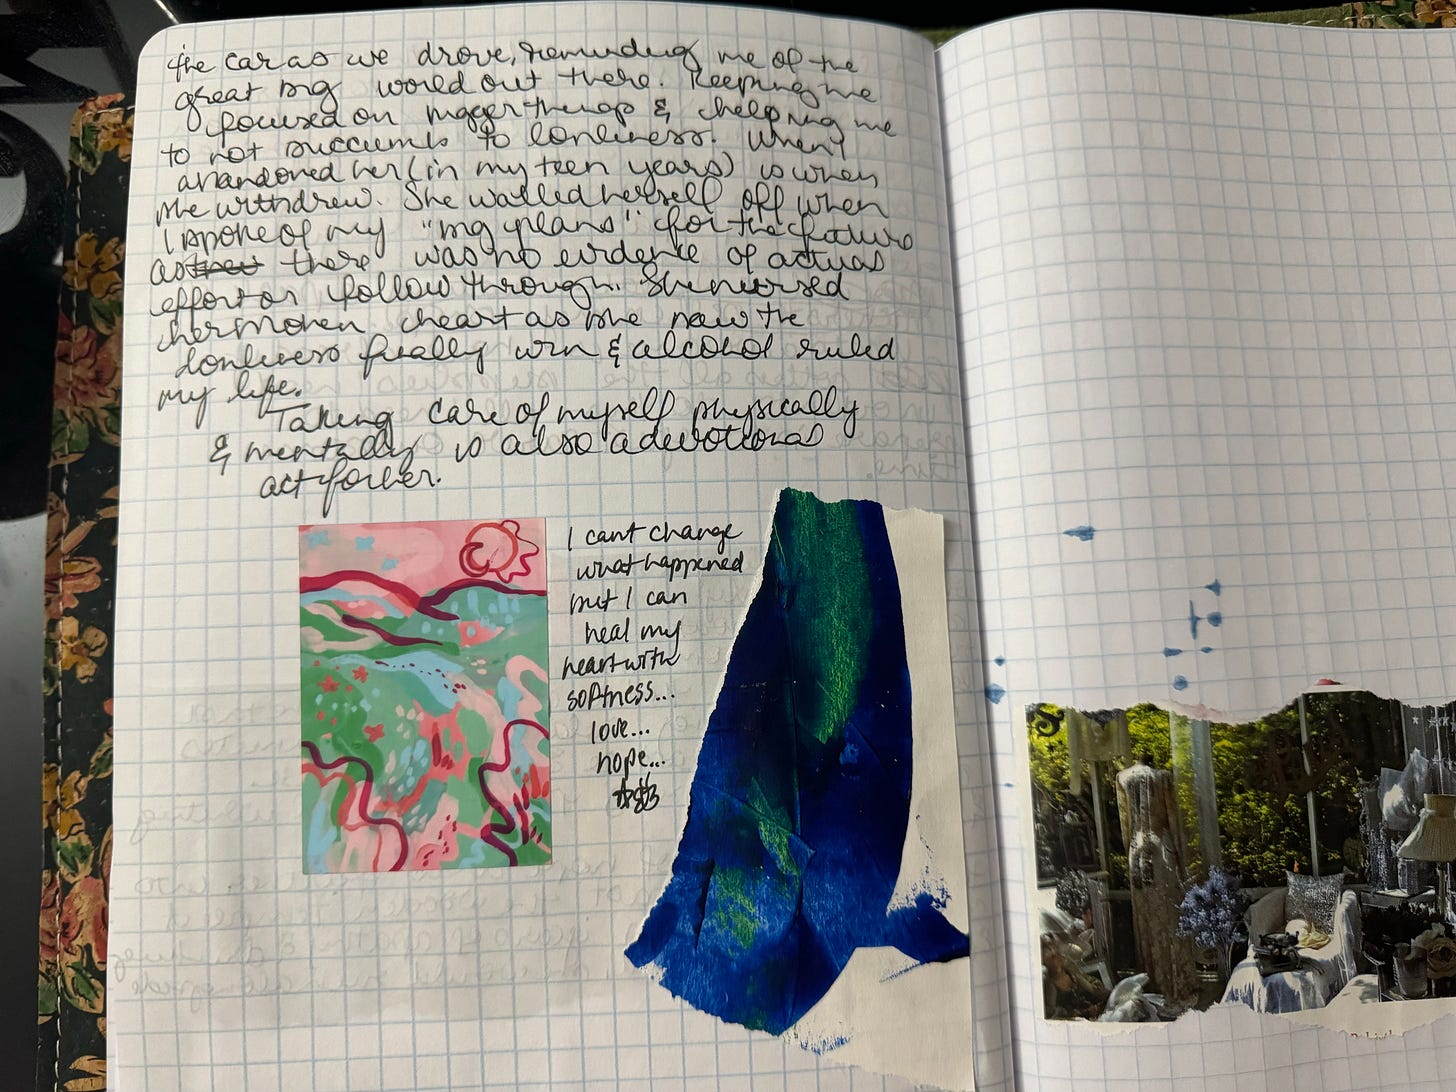 the car as we drove, reminding me of the
great big world out there. Keeping me
focused on bigger things & helping me
to not succumb to lonliness. When I
abandoned her (in my teen years) is when
she withdrew. She walled herself off when
I spoke of my "big plans" for the future
as there was no evidence of actual
effort or follow through. She nursed
her broken heart as she saw the
lonliness finally win & alcohol ruled
my life.
Taking care of myself physically
& mentally is also a devotional
act for her.
I cant change
what happened
but I can
heal my
heart with
softness...
love...
hope...